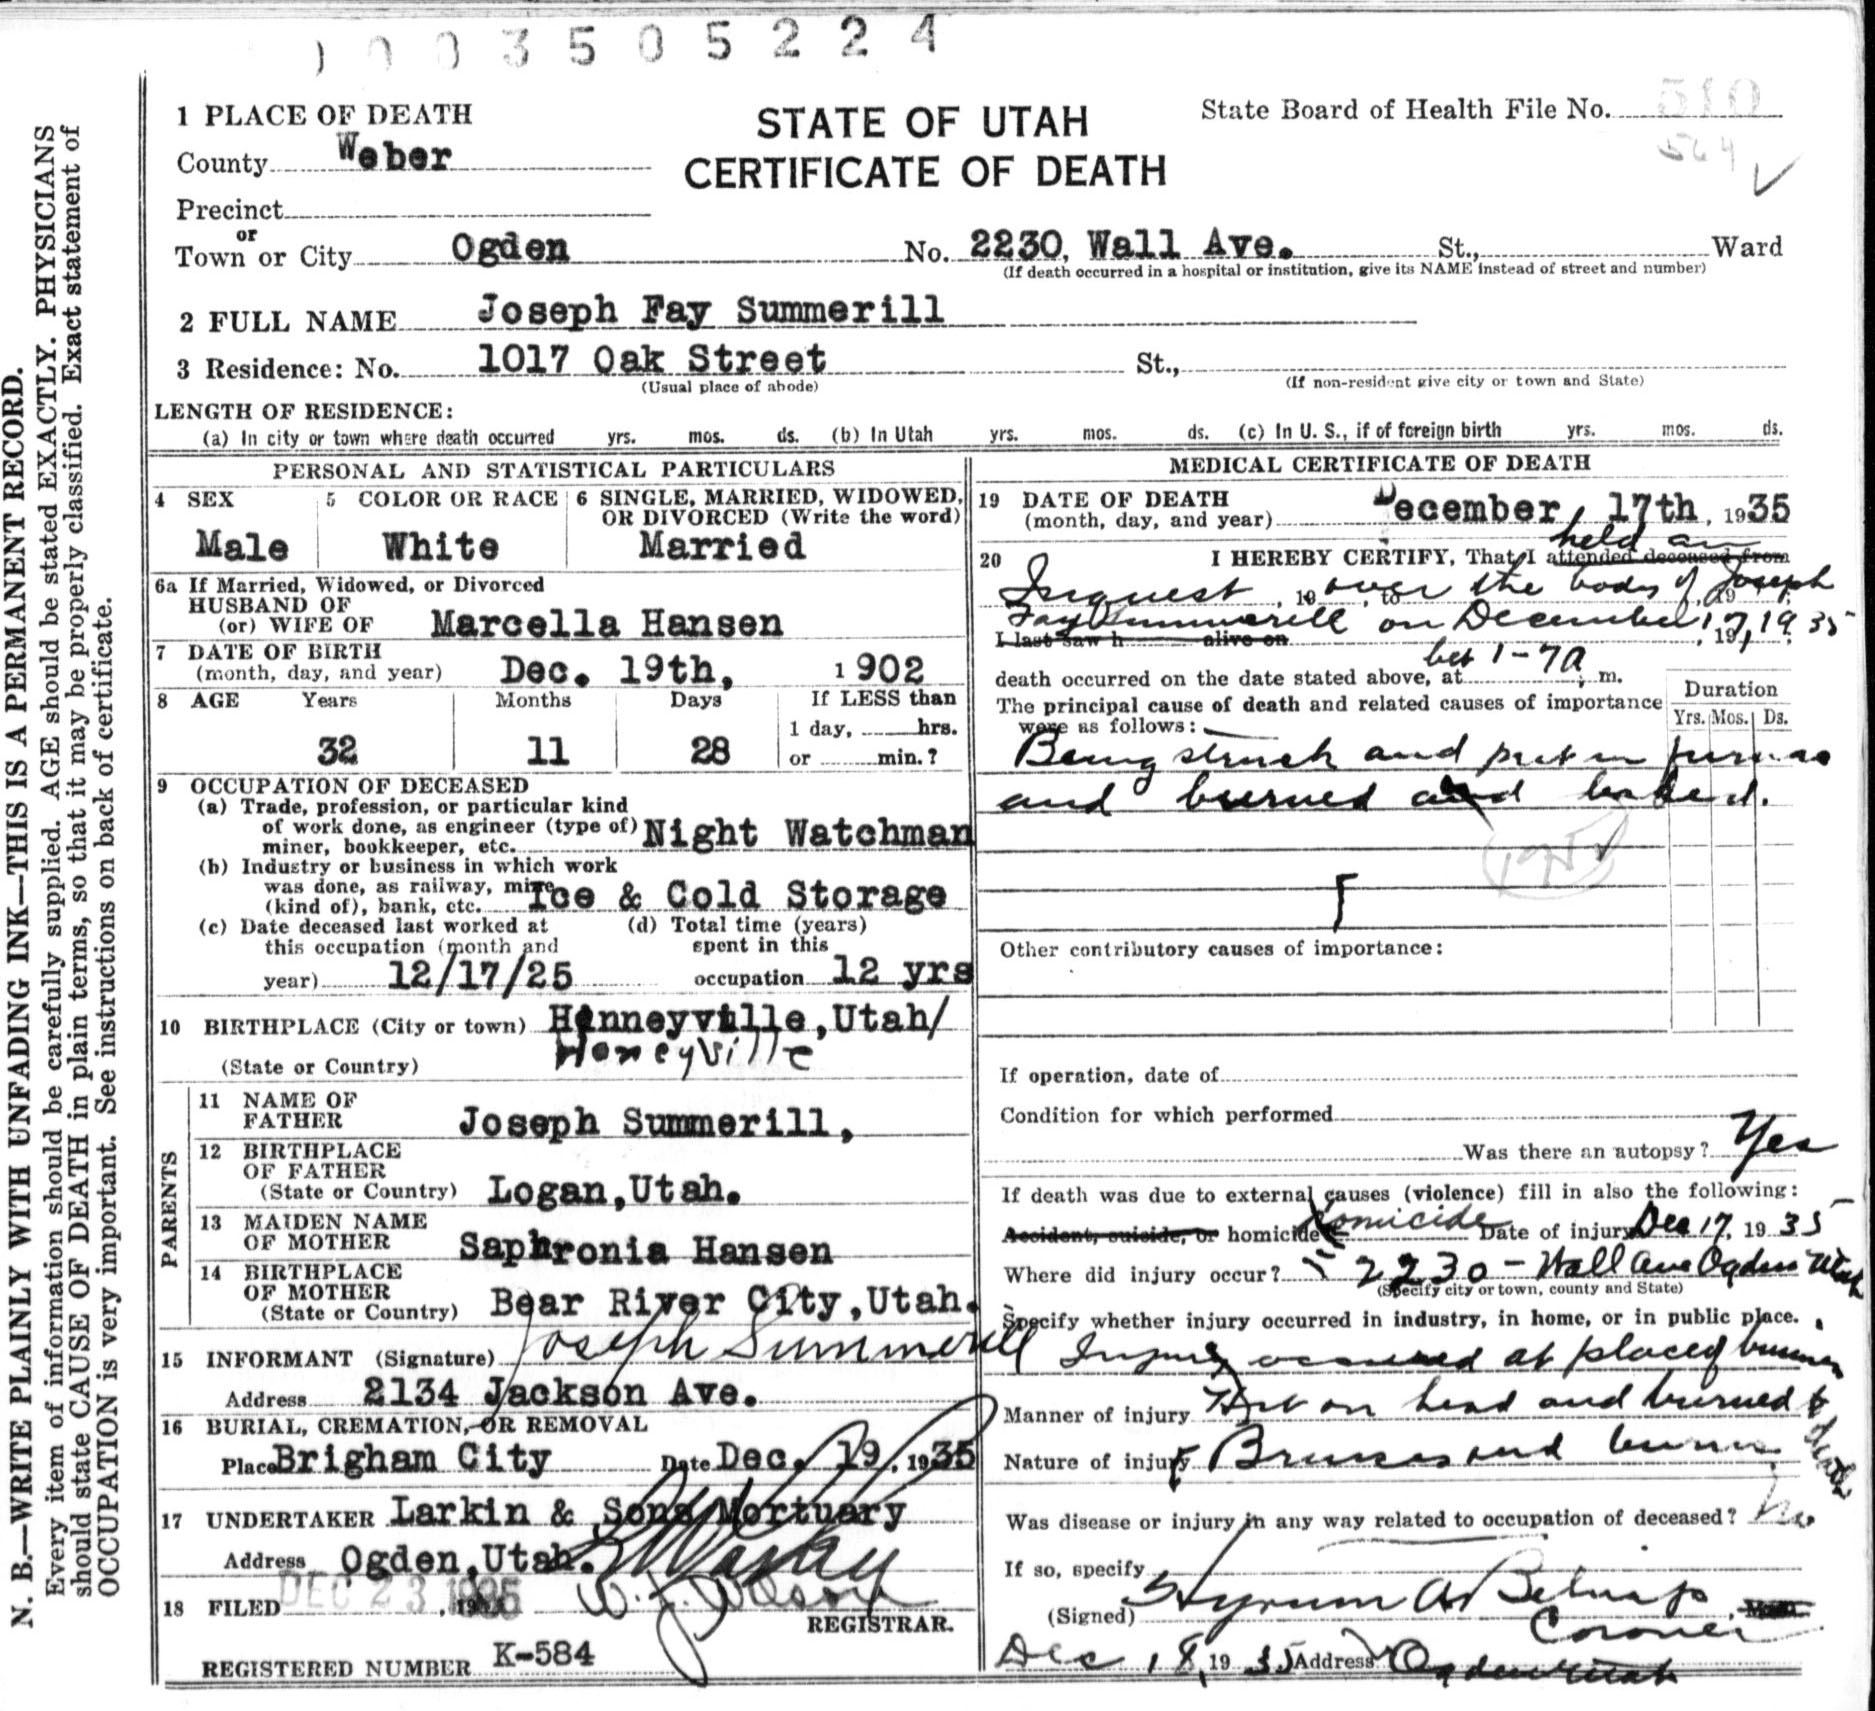 1 0 0 3 5 0 5 2 2 4
N. B.—WRITE PLAINLY WITH UNFADING INK—THIS IS A PERMANENT RECORD.
Every item of information should be carefully supplied. AGE should be stated EXACTLY. PHYSICIANS
should state CAUSE OF DEATH in plain terms, so that it may be properly classified. Exact statement of
OCCUPATION is very important. See instructions on back of certificate.
1 PLACE OF DEATH
County Weber
Precinct
or
Town or City Ogden
STATE OF UTAH
CERTIFICATE OF DEATH
State Board of Health File No. 510
564
No. 2230, Wall Ave. St., Ward
(If death occurred in a hospital or institution, give its NAME instead of street and number)
2 FULL NAME Joseph Fay Summerill
3 Residence: No. 1017 Oak Street St.,
(Usual place of abode) (If non-resident give city or town and State)
LENGTH OF RESIDENCE:
(a) In city or town where death occurred yrs. mos. ds. (b) In Utah yrs. mos. ds. (c) In U. S., if of foreign birth yrs. mos. ds.
PERSONAL AND STATISTICAL PARTICULARS
4 SEX
Male
5 COLOR OR RACE
White
6 SINGLE, MARRIED, WIDOWED,
OR DIVORCED (Write the word)
Married
6a If Married, Widowed, or Divorced
HUSBAND OF
(or) WIFE OF Marcella Hansen
7 DATE OF BIRTH
(month, day, and year) Dec. 19th, 1902
8 AGE Years Months Days If LESS than
1 day, hrs.
32 11 28 or min.?
9 OCCUPATION OF DECEASED
(a) Trade, profession, or particular kind
of work done, as engineer (type of)
miner, bookkeeper, etc. Night Watchman
(b) Industry or business in which work
was done, as railway, mine
(kind of), bank, etc. Ice & Cold Storage
(c) Date deceased last worked at
this occupation (month and
year) 12/17/25
(d) Total time (years)
spent in this
occupation 12 yrs
10 BIRTHPLACE (City or town) Hinneyville, Utah/
Honeyville
(State or Country)
PARENTS
11 NAME OF
FATHER Joseph Summerill,
12 BIRTHPLACE
OF FATHER
(State or Country) Logan, Utah.
13 MAIDEN NAME
OF MOTHER Saphronia Hansen
14 BIRTHPLACE
OF MOTHER
(State or Country) Bear River City, Utah.
15 INFORMANT (Signature) Joseph Summerill
Address 2134 Jackson Ave.
16 BURIAL, CREMATION, OR REMOVAL
Place Brigham City Date Dec. 19, 1935
17 UNDERTAKER Larkin & Sons Mortuary
Address Ogden, Utah.
18 FILED DEC 23 1935 W. J. Wilson
REGISTRAR.
REGISTERED NUMBER K-584
MEDICAL CERTIFICATE OF DEATH
19 DATE OF DEATH
(month, day, and year) December, 17th, 1935
held an
20 I HEREBY CERTIFY, That I attended deceased from
Inquest, 19 over, to the body of Joseph, 19
Fay Summerill on December 17, 1935
I last saw h alive on , 19
death occurred on the date stated above, at bet 1-7 a m.
The principal cause of death and related causes of importance
were as follows:
Duration
Yrs. Mos. Ds.
Being struck and put in furnace
and burned and baked.
Other contributory causes of importance:
If operation, date of
Condition for which performed
Was there an autopsy? Yes
If death was due to external causes (violence) fill in also the following:
Accident, suicide, or homicide Homicide Date of injury Dec 17, 1935
Where did injury occur? 2230 - Wall Ave Ogden Utah
(Specify city or town, county and State)
Specify whether injury occurred in industry, in home, or in public place.
Injury occurred at place of business
Manner of injury Hit on head and burned to death
Nature of injury Bruises and burns
Was disease or injury in any way related to occupation of deceased? no
If so, specify
(Signed) Hyrum A Belnap
Coroner
Dec 18, 1935 Address Ogden Utah